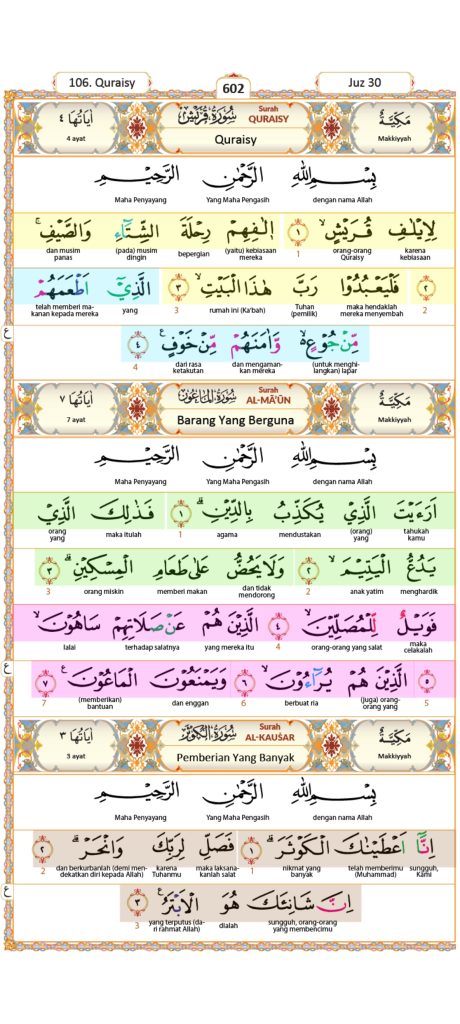 106. Quraisy 602 Juz 30
مَكِّيَّةٌ سُوْرَةُ قُرَيْشٍ Surah QURAISY اٰيَاتُهَا ٤
Makkiyyah Quraisy 4 ayat
بِسْمِ اللّٰهِ الرَّحْمٰنِ الرَّحِيْمِ
dengan nama Allah Yang Maha Pengasih Maha Penyayang
لِاِيْلٰفِ قُرَيْشٍۙ ١ اٖلٰفِهِمْ رِحْلَةَ الشِّتَاۤءِ وَالصَّيْفِۚ
karena kebiasaan orang-orang Quraisy 1 (yaitu) kebiasaan mereka bepergian (pada) musim dingin dan musim panas
٢ فَلْيَعْبُدُوْا رَبَّ هٰذَا الْبَيْتِۙ ٣ الَّذِيْٓ اَطْعَمَهُمْ
2 maka hendaklah mereka menyembah Tuhan (pemilik) rumah ini (Ka'bah) 3 yang telah memberi makanan kepada mereka
مِّنْ جُوْعٍ ەۙ وَّاٰمَنَهُمْ مِّنْ خَوْفٍ ٤ ع
(untuk menghilangkan) lapar dan mengamankan mereka dari rasa ketakutan 4
مَكِّيَّةٌ سُوْرَةُ الْمَاعُوْنَ Surah AL-MĀ'ŪN اٰيَاتُهَا ٧
Makkiyyah Barang Yang Berguna 7 ayat
بِسْمِ اللّٰهِ الرَّحْمٰنِ الرَّحِيْمِ
dengan nama Allah Yang Maha Pengasih Maha Penyayang
اَرَءَيْتَ الَّذِيْ يُكَذِّبُ بِالدِّيْنِۗ ١ فَذٰلِكَ الَّذِيْ
tahukah kamu (orang) yang mendustakan agama 1 maka itulah orang yang
يَدُعُّ الْيَتِيْمَۙ ٢ وَلَا يَحُضُّ عَلٰى طَعَامِ الْمِسْكِيْنِۗ ٣
menghardik anak yatim 2 dan tidak mendorong memberi makan orang miskin 3
فَوَيْلٌ لِّلْمُصَلِّيْنَۙ ٤ الَّذِيْنَ هُمْ عَنْ صَلَاتِهِمْ سَاهُوْنَۙ
maka celakalah orang-orang yang salat 4 yang mereka itu terhadap salatnya lalai
٥ الَّذِيْنَ هُمْ يُرَاۤءُوْنَۙ ٦ وَيَمْنَعُوْنَ الْمَاعُوْنَ ٧ ع
5 (juga) orang-orang yang berbuat ria 6 dan enggan (memberikan) bantuan 7
مَكِّيَّةٌ سُوْرَةُ الْكَوْثَرِ Surah AL-KAUṠAR اٰيَاتُهَا ٣
Makkiyyah Pemberian Yang Banyak 3 ayat
بِسْمِ اللّٰهِ الرَّحْمٰنِ الرَّحِيْمِ
dengan nama Allah Yang Maha Pengasih Maha Penyayang
اِنَّآ اَعْطَيْنٰكَ الْكَوْثَرَۗ ١ فَصَلِّ لِرَبِّكَ وَانْحَرْۗ ٢
sungguh, Kami telah memberimu (Muhammad) nikmat yang banyak 1 maka laksanakanlah salat karena Tuhanmu dan berkurbanlah (demi mendekatkan diri kepada Allah) 2
اِنَّ شَانِئَكَ هُوَ الْاَبْتَرُ ٣ ع
sungguh, orang-orang yang membencimu dialah yang terputus (dari rahmat Allah) 3